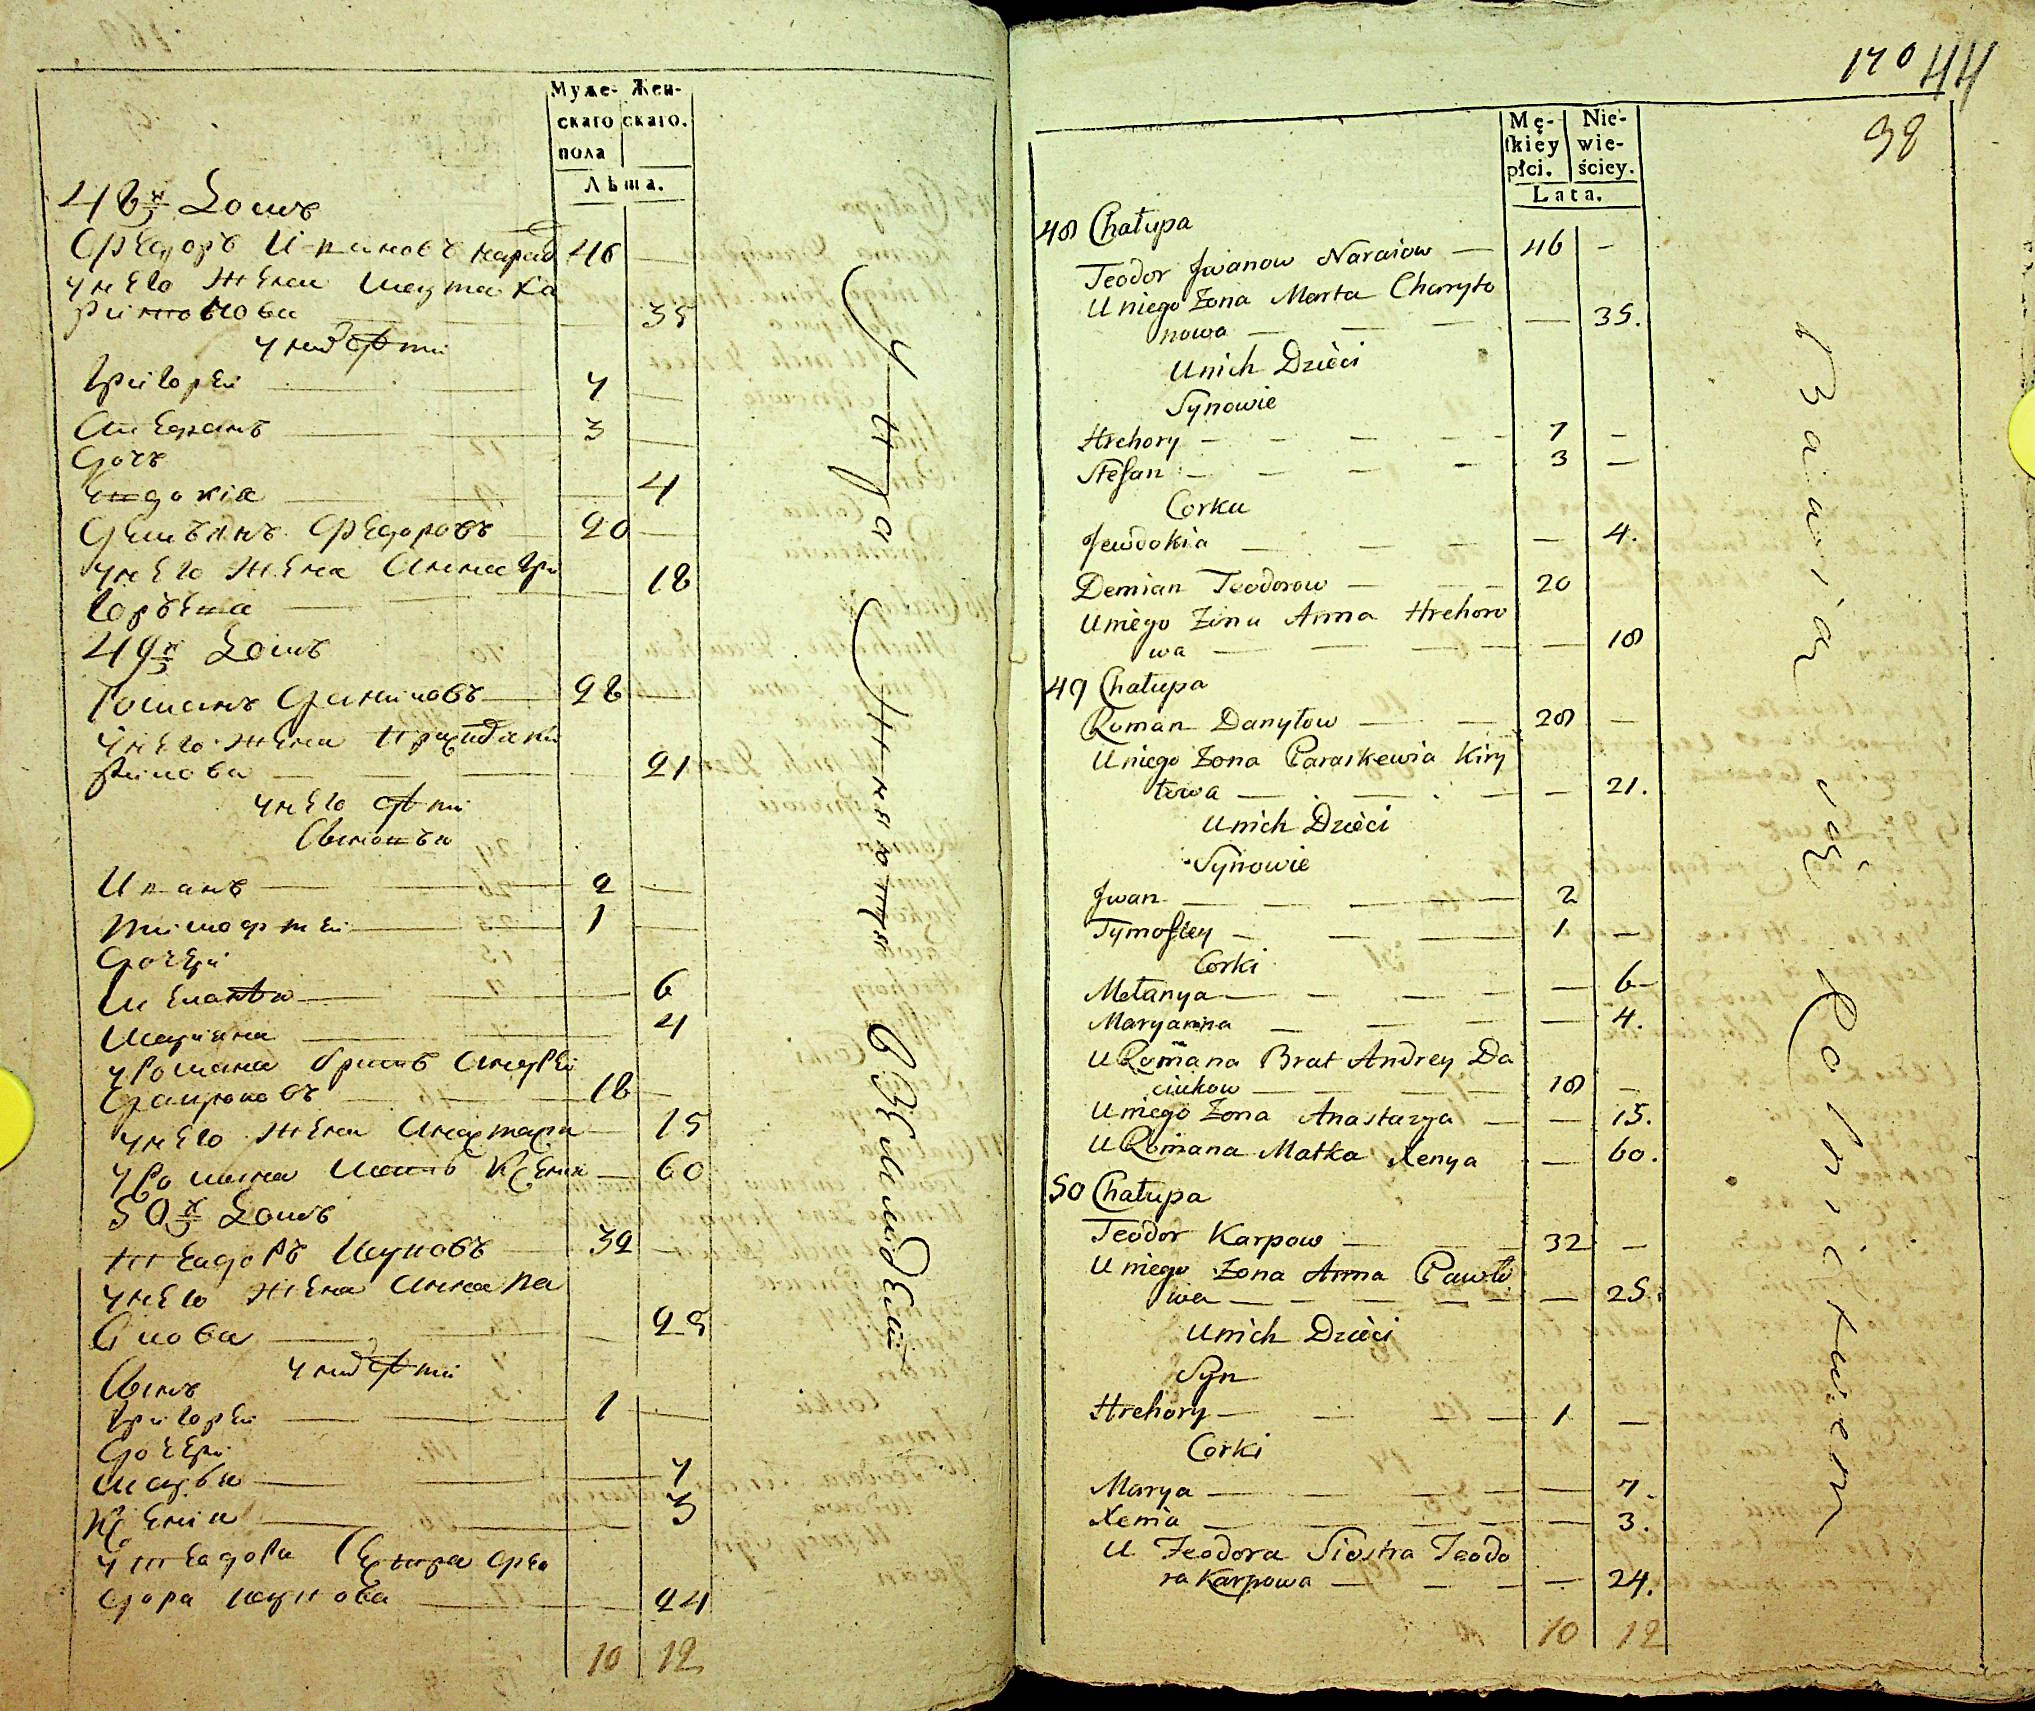 Муже- Жен-
скаго скаго.
пола
Лѣта.
48й Домъ
Федоръ Ивановъ 46 —
у него жена Марта Ха
ритонова — 35
у них дѣти
Григорей — 7 —
Степанъ — 3 —
дочь
Евдокія — 4
Демьянъ Федоровъ — 20 —
у него жена Анна Гри
горьева — 18
49й Домъ
Романъ Даниловъ — 28 —
у него жена
рилова — 21
у него дѣти
Сыновья
Иванъ — 2 —
Тимофей — 1 —
дочери
Меланья — 6
Марьяна — 4
у Романа братъ Андрей
— 18 —
у него жена Анастасія — 15
у Романа мать Ксенія — 60
50й Домъ
Феадоръ Карповъ — 32 —
у него жена Анна Па
влова — 25
у них дѣти
Сынъ
Григорей — 1 —
дочери
Марья — 7
Ксенія — 3
у Феадора Сестра Фео
дора Карпова — 24
10 12
170 44
38
Mę- Nie-
skiey wie-
płci. ściey.
Lata.
48 Chałupa
Teodor Jwanow Naraiow — 46 —
U niego Zona Marta Charyto
nowa — — — — 35.
U nich Dzieci
Synowie
Hrehory — — — — 7 —
Stefan — — — — 3 —
Corka
Jewdokia — — — — 4.
Demian Teodorow — — 20
U niego Zona Anna Hrehoro
wa — — — — 18
49 Chałupa
Roman Danyłow — — 28 —
U niego Zona Paraskewia Kiry
łowa — — — — 21.
U nich Dzieci
Synowie
Jwan — — — — 2
Tymofiey — — — 1 —
Corki
Mełanya — — — — 6 —
Maryanna — — — — 4.
U Romana Brat Andrey Da
ciukow — — — 18 —
U niego Zona Anastazya — — 15.
U Romana Matka Xenya — 60.
50 Chałupa
Teodor Karpow — — 32 —
U niego Zona Anna Pawło
wa — — — — 25.
U nich Dzieci
Syn
Hrehory — — — 1 —
Corki
Marya — — — — 7.
Xenia — — — — 3.
U Teodora Siostra Teodo
ra Karpowa — — — 24.
10 12